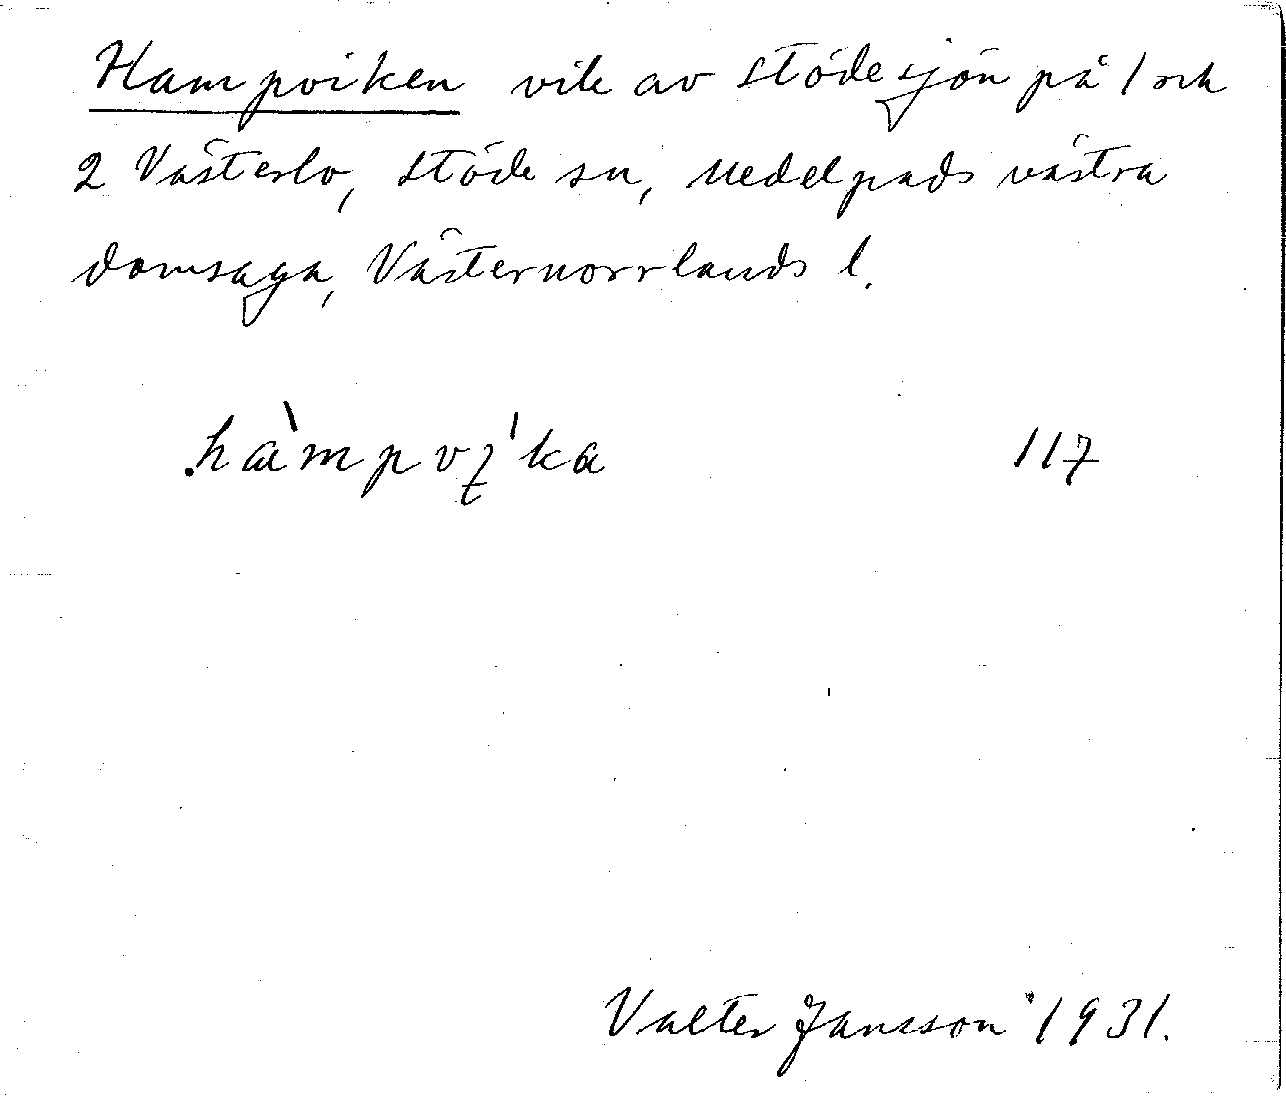 Hampviken vik av Stödesjön på 1 och
2 Västerlo, Stöde sn, Medelpads västra
domsaga, Västernorrlands l.
hàmpvı̨'ka 117
Valter Jansson 1931.